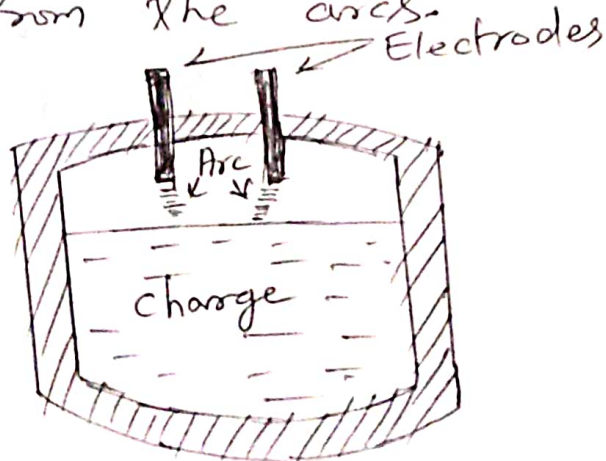 from the arcs.
Electrodes
Arc
charge